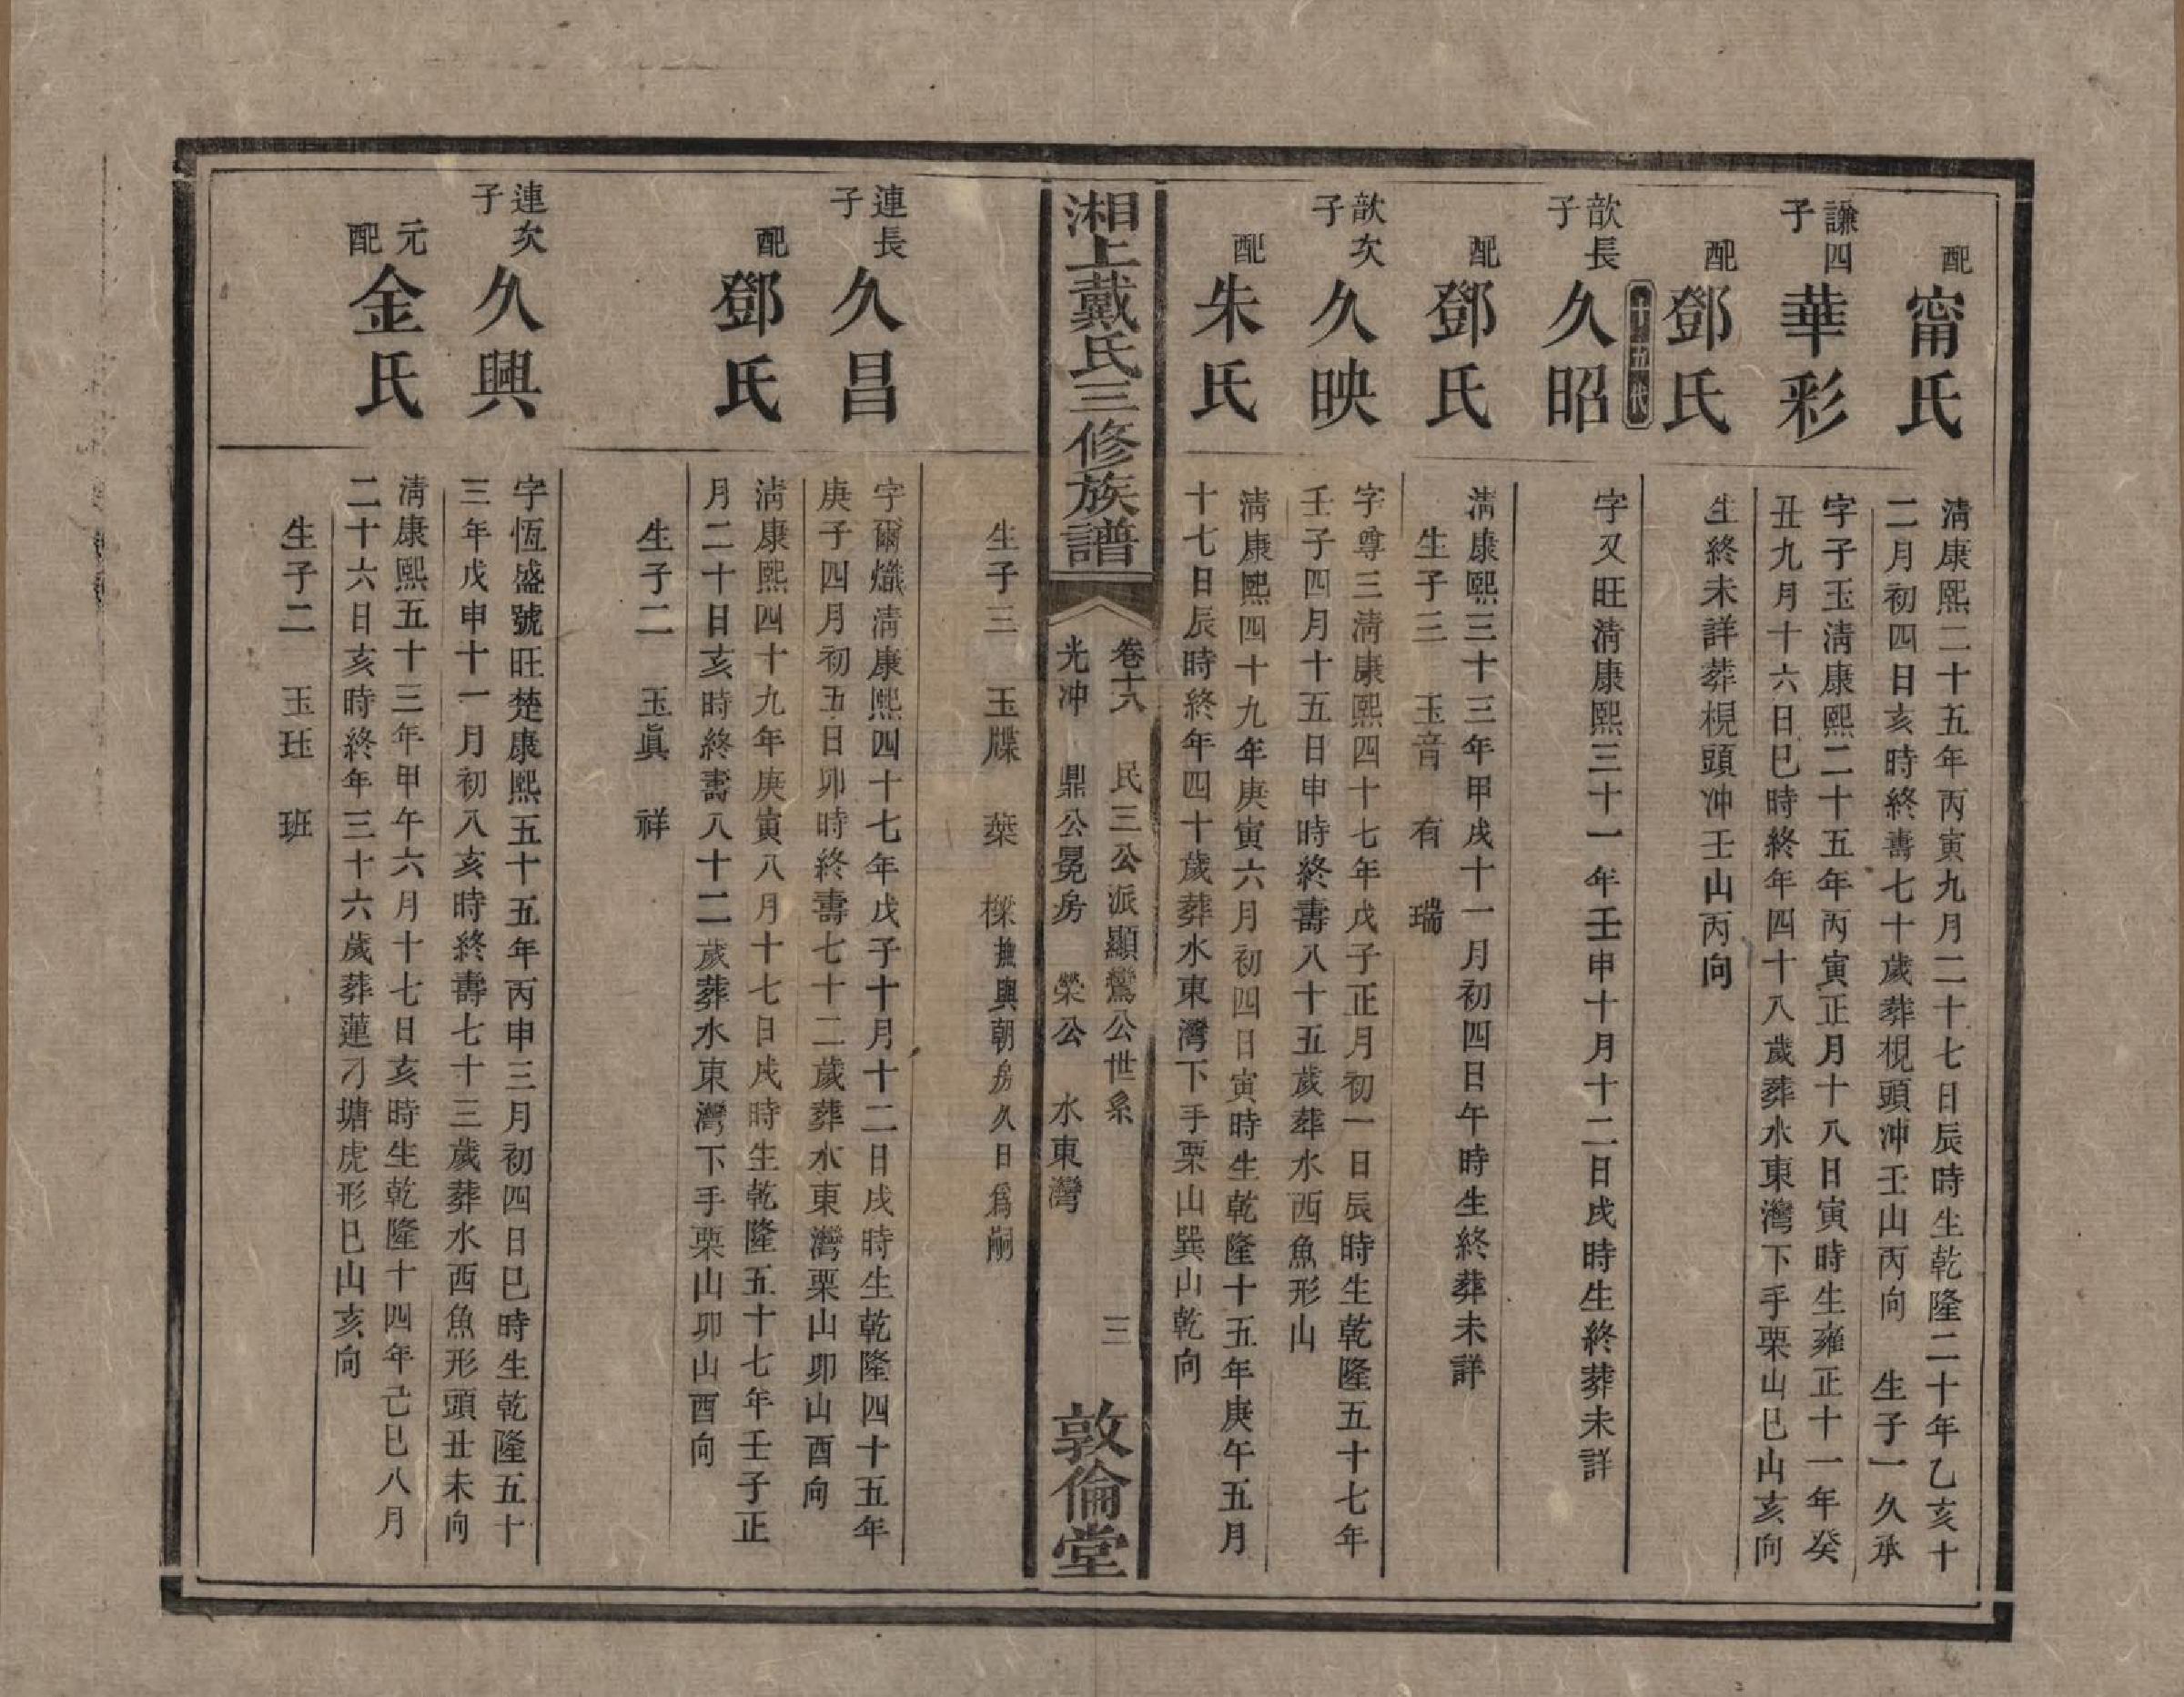 配甯氏
清康熙二十五年丙寅九月二十七日辰時生乾隆二十年乙亥十
二月初四日亥時終壽七十歲葬梘頭冲壬山丙向　生子一久承
謙四子華彩
字子玉清康熙二十五年丙寅正月十八日寅時生雍正十一年癸
丑九月十六日巳時終年四十八歲葬水東灣下手栗山巳山亥向
配鄧氏
生終未詳葬梘頭冲壬山丙向
十五代
歆長子久昭
字又旺清康熙三十一年壬申十月十二日戌時生終葬未詳
配鄧氏
清康熙三十三年甲戌十一月初四日午時生終葬未詳
生子三　玉音　有　瑞
歆次子久映
字尊三清康熙四十七年戊子正月初一日辰時生乾隆五十七年
壬子四月十五日申時終壽八十五歲葬水西魚形山
配朱氏
清康熙四十九年庚寅六月初四日寅時生乾隆十五年庚午五月
十七日辰時終年四十歲葬水東灣下手栗山巽山乾向
湘上戴氏三修族譜
卷十六　民三公派顯鸞公世系　三
光冲　鼎公冕房　榮公　水東灣
敦倫堂
生子三　玉牒　葉　樑撫與朝房久日爲嗣
連長子久昌
字爾熾清康熙四十七年戊子十月十二日戌時生乾隆四十五年
庚子四月初五日卯時終壽七十二歲葬水東灣栗山卯山酉向
配鄧氏
清康熙四十九年庚寅八月十七日戌時生乾隆五十七年壬子正
月二十日亥時終壽八十二歲葬水東灣下手栗山卯山酉向
生子二　玉眞　祥
連次子久興
字恆盛號旺楚康熙五十五年丙申三月初四日巳時生乾隆五十
三年戊申十一月初八亥時終壽七十三歲葬水西魚形頭丑未向
元配金氏
清康熙五十三年甲午六月十七日亥時生乾隆十四年己巳八月
二十六日亥時終年三十六歲葬蓮刁塘虎形巳山亥向
生子二　玉玨　班